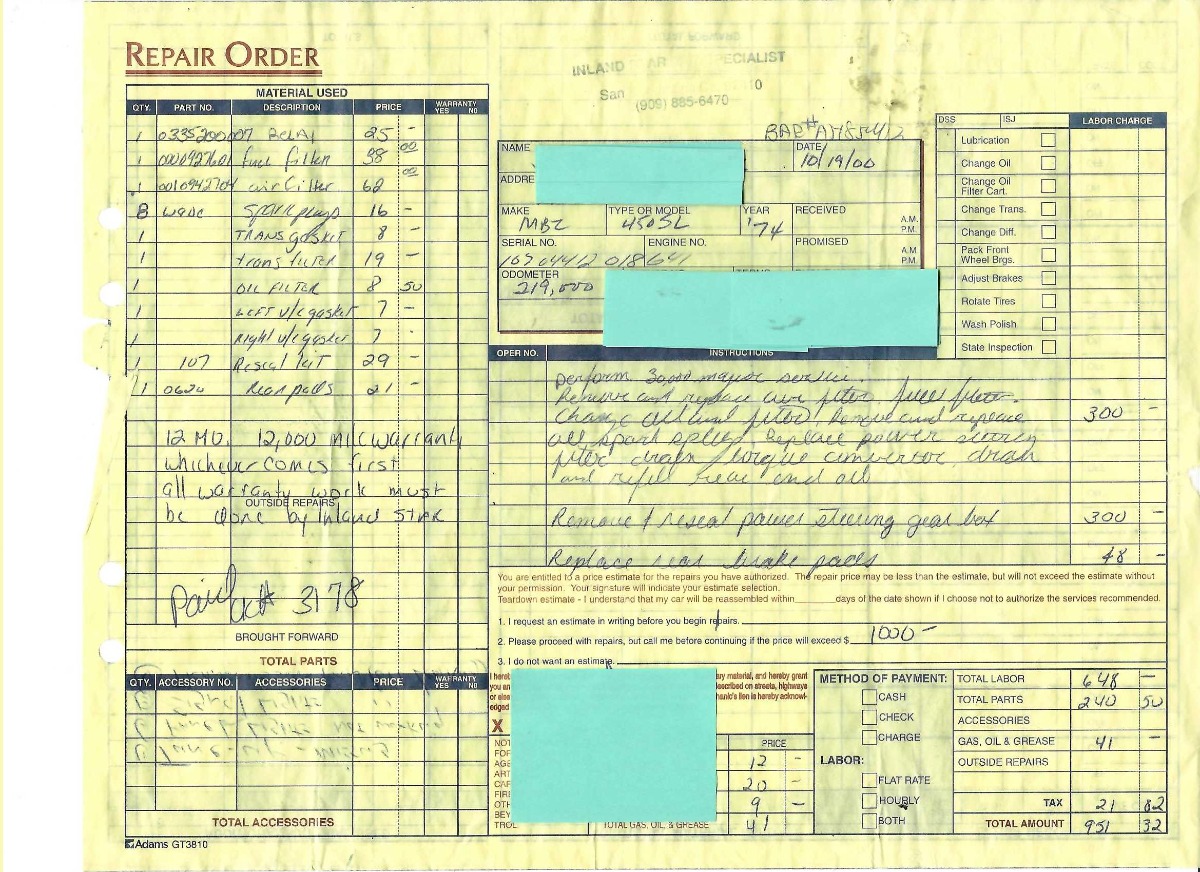 REPAIR ORDER
INLAND AR ECIALIST
San 0
(909) 885-6470
BAR# A785412
MATERIAL USED
QTY. PART NO. DESCRIPTION PRICE WARRANTY YES NO
1 0335200007 Relay 25 -
1 0000927601 fuel filter 38 00
1 0010942704 air filter 62 00
8 spark plugs 16 -
1 TRANS gasket 8 -
1 trans filter 19 -
1 OIL FILTER 8 50
1 LEFT v/c gasket 7 -
1 Right v/c gasket 7 -
1 107 Reseal kit 29 -
1 Rear pads 21 -
12 MO. 12,000 mile warranty
whichever comes first
all warranty work must
OUTSIDE REPAIRS
be done by Inland STAR
Paid ck# 3178
BROUGHT FORWARD
TOTAL PARTS
QTY. ACCESSORY NO. ACCESSORIES PRICE WARRANTY YES NO
TOTAL ACCESSORIES
Adams GT3810
NAME DATE 10/19/00
ADDRE
MAKE MBZ TYPE OR MODEL 450SL YEAR '74 RECEIVED A.M. P.M.
SERIAL NO. 10704412018641 ENGINE NO. PROMISED A.M. P.M.
ODOMETER 219,000
DSS ISJ LABOR CHARGE
Lubrication
Change Oil
Change Oil Filter Cart.
Change Trans.
Change Diff.
Pack Front Wheel Brgs.
Adjust Brakes
Rotate Tires
Wash Polish
State Inspection
OPER NO. INSTRUCTIONS
perform 30,000 major service.
Remove and replace air filter, fuel filter.
Change oil and filter, Remove and replace 300 -
all spark plugs, Replace power steering
filter drain torque conversor drain
and refill rear end oil
Remove & reseal power steering gear box 300 -
Replace rear brake pads 48 -
You are entitled to a price estimate for the repairs you have authorized. The repair price may be less than the estimate, but will not exceed the estimate without
your permission. Your signature will indicate your estimate selection.
Teardown estimate - I understand that my car will be reassembled within_______days of the date shown if I choose not to authorize the services recommended.
1. I request an estimate in writing before you begin repairs.
2. Please proceed with repairs, but call me before continuing if the price will exceed $ 1000 -
3. I do not want an estimate.
I hereb ary material, and hereby grant
you an described on streets, highways
or else hanic's lien is hereby acknowl-
edged
X
NOT
FOR
AGE
ART
CAR
FIRE
OTH
BEY
TROL
PRICE
12 -
20 -
9 -
TOTAL GAS, OIL, & GREASE 41 -
METHOD OF PAYMENT:
CASH
CHECK
CHARGE
LABOR:
FLAT RATE
HOURLY
BOTH
TOTAL LABOR 648 -
TOTAL PARTS 240 50
ACCESSORIES
GAS, OIL & GREASE 41 -
OUTSIDE REPAIRS
TAX 21 82
TOTAL AMOUNT 951 32